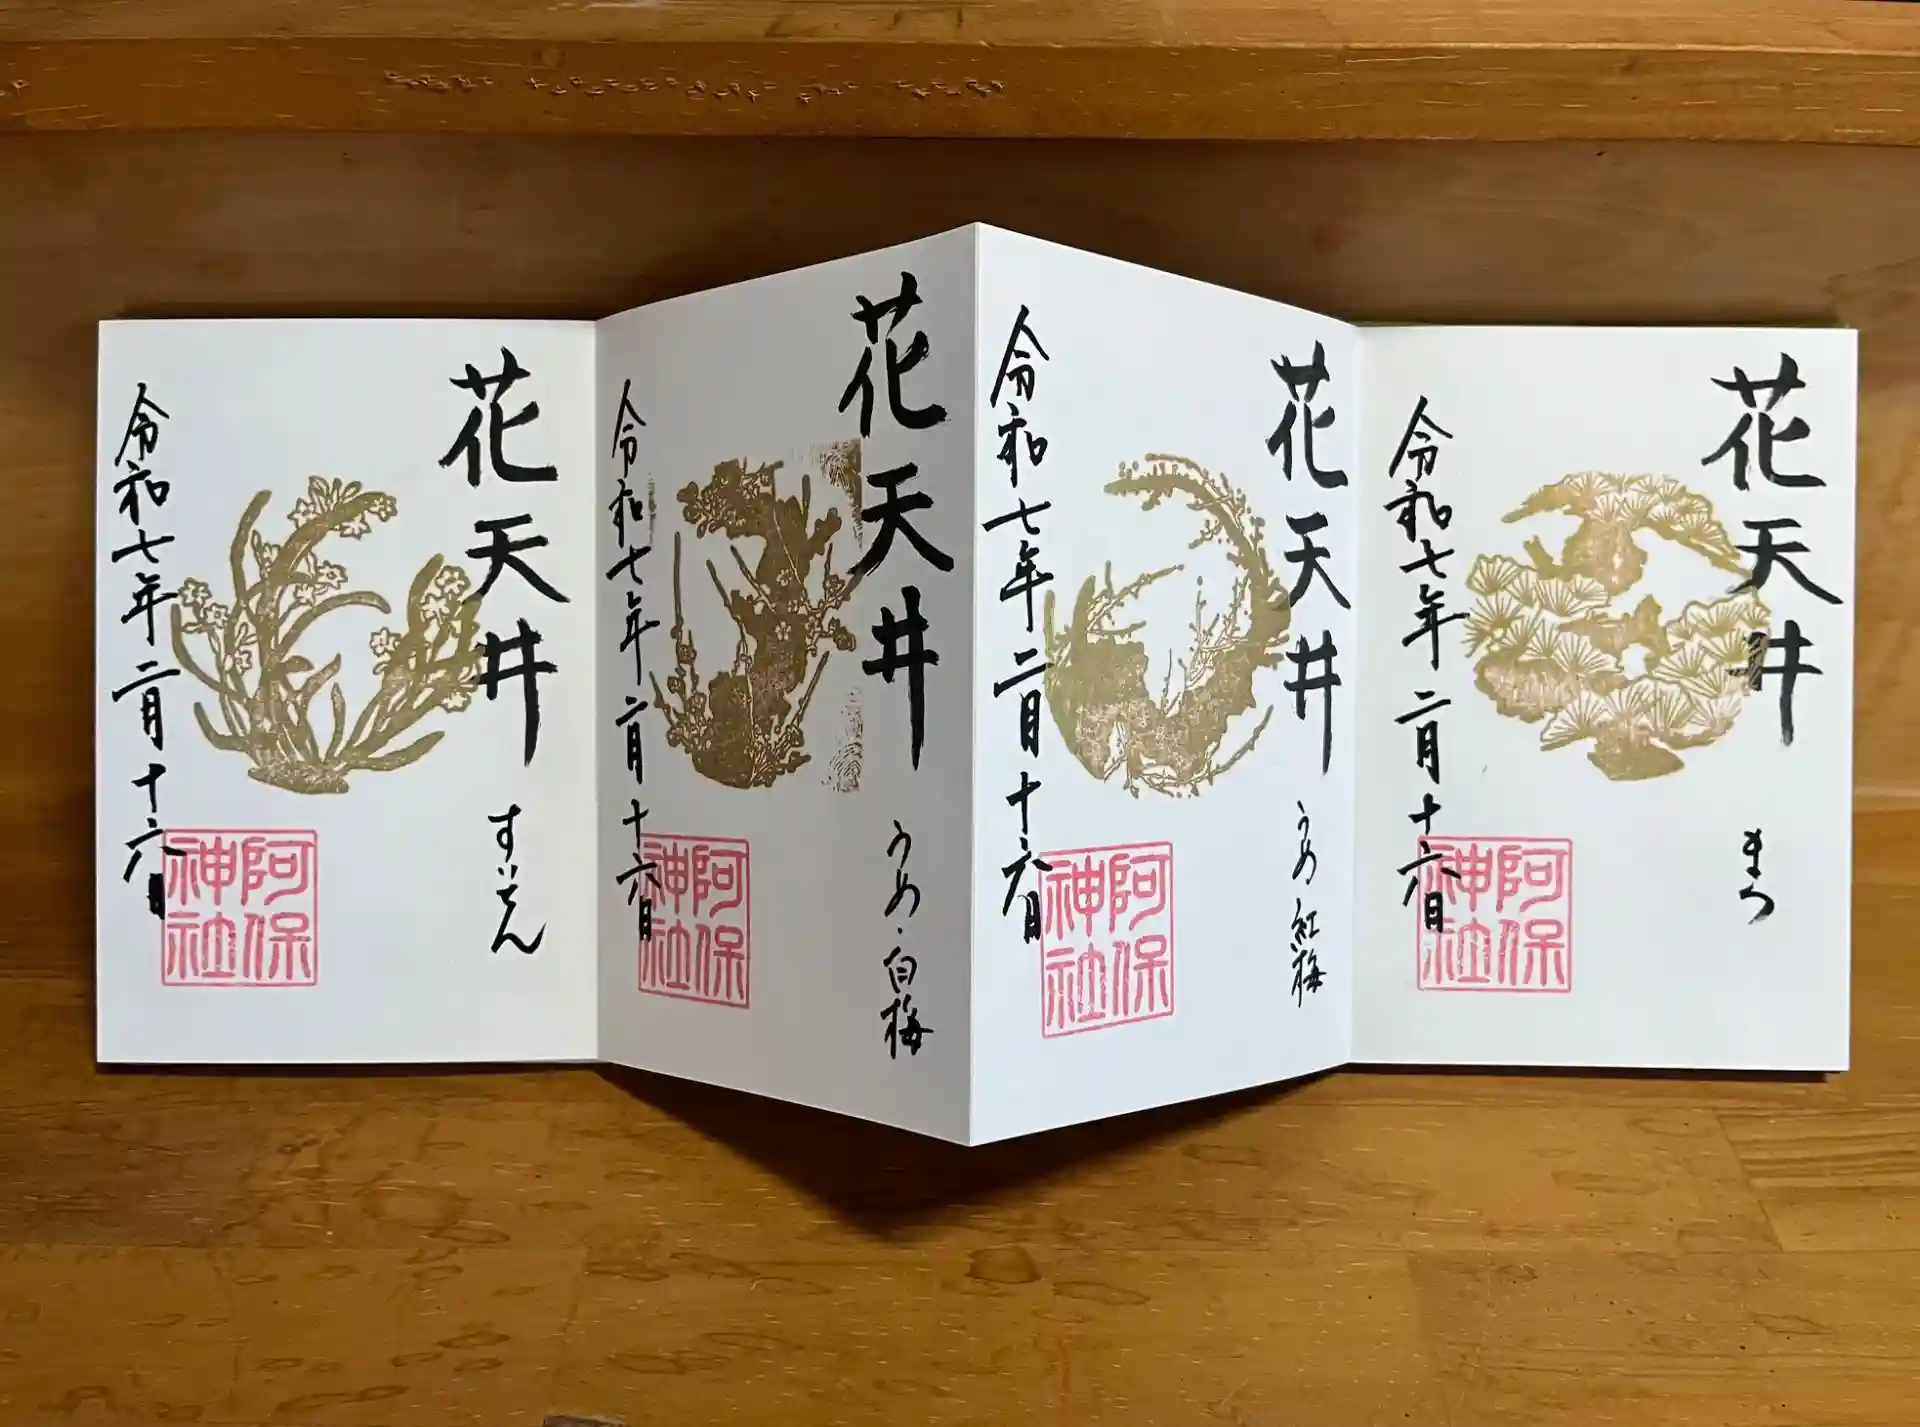 花天井
まつ
令和七年二月十六日
阿保
神社
花天井
うめ 紅梅
令和七年二月十六日
阿保
神社
花天井
うめ・白梅
令和七年二月十六日
阿保
神社
花天井
すいせん
令和七年二月十六日
阿保
神社